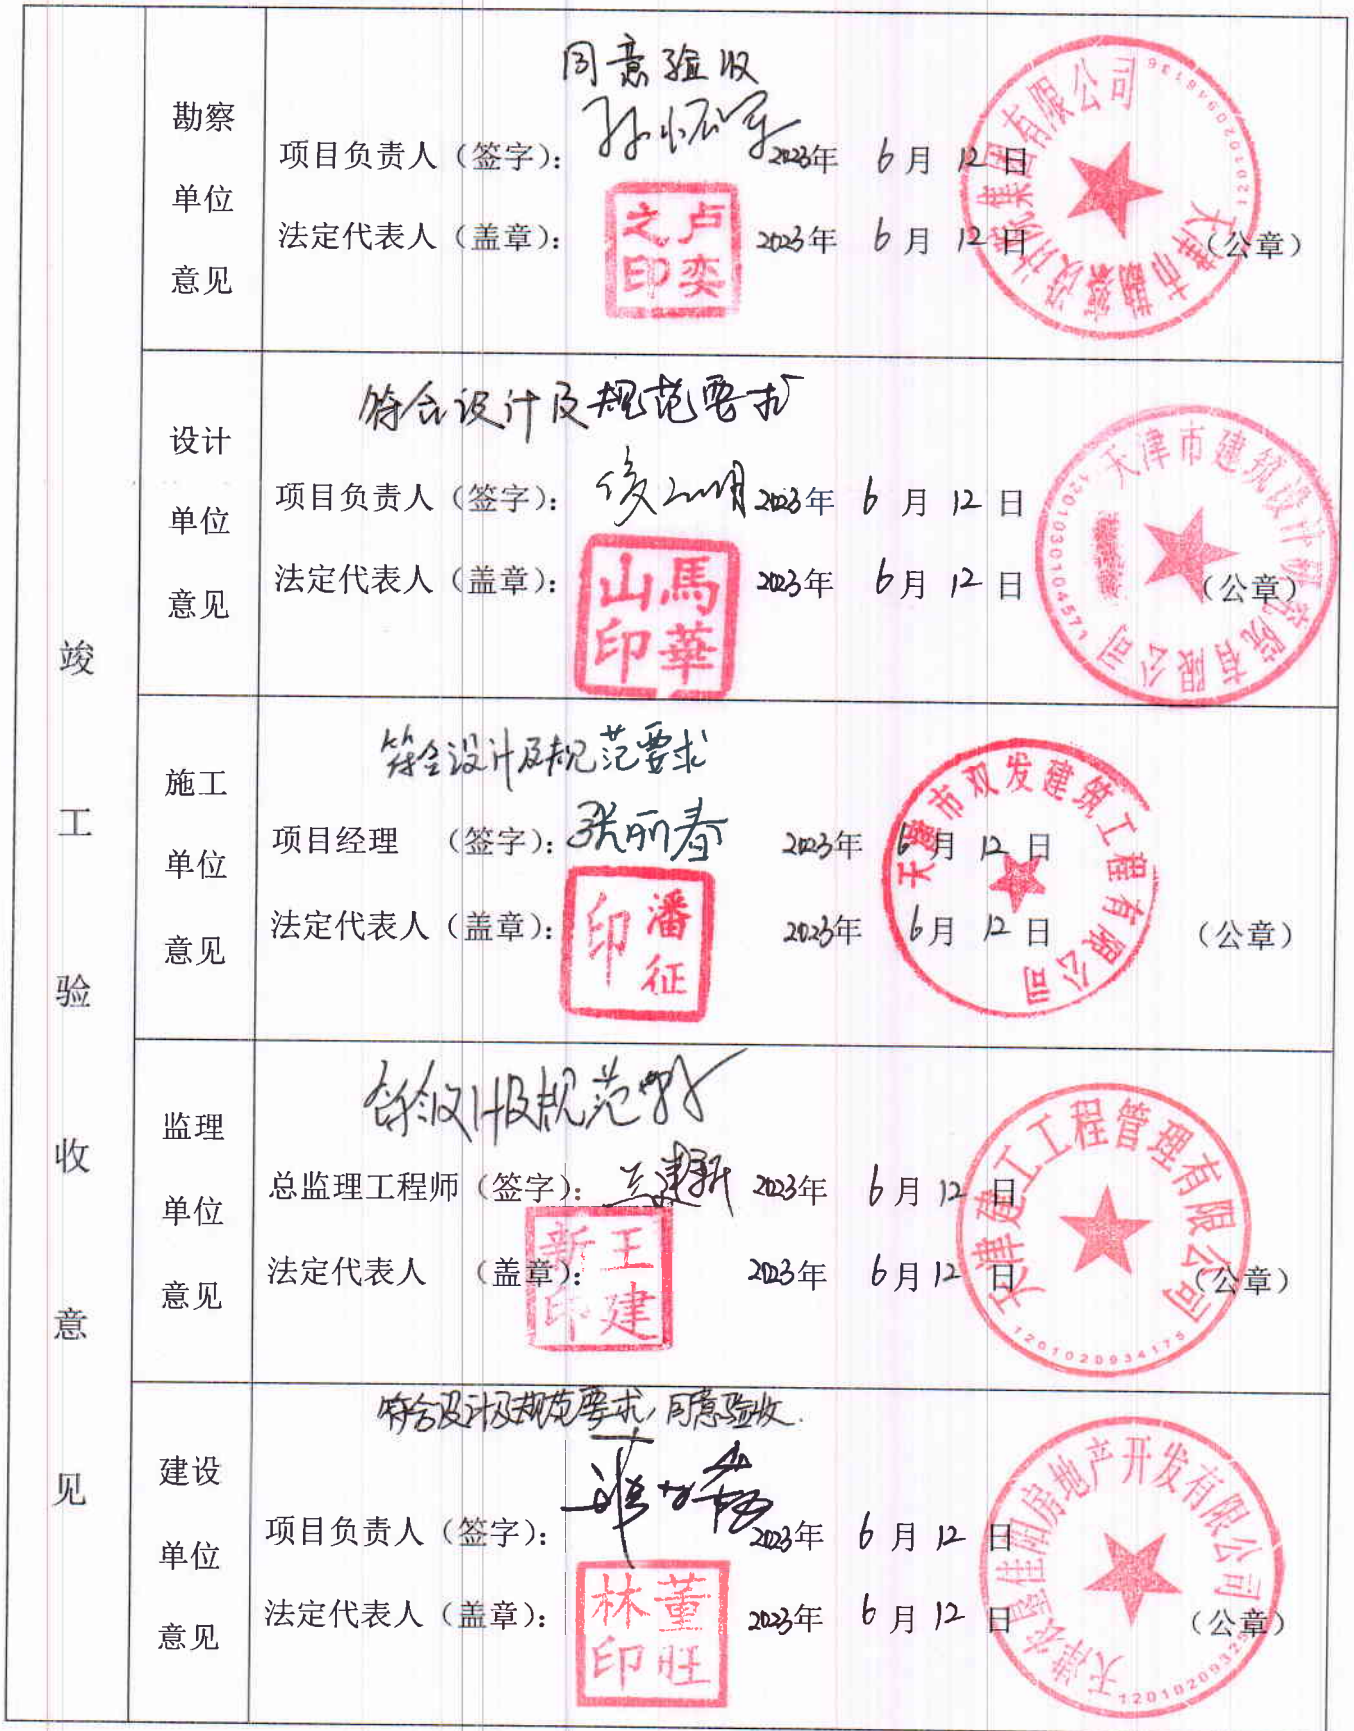 竣工验收意见
勘察单位意见
同意验收
项目负责人（签字）： 孙怀军 2023年 6月 12日
法定代表人（盖章）： 卢奕之印 2023年 6月 12日 （公章）
天津市勘察设计院集团有限公司
设计单位意见
符合设计及规范要求
项目负责人（签字）： 2023年 6月 12日
法定代表人（盖章）： 馬華山印 2023年 6月 12日 （公章）
天津市建筑设计研究院有限公司
1201030104571
施工单位意见
符合设计及规范要求
项目经理 （签字）： 张丽春 2023年 6月 12日
法定代表人（盖章）： 潘征印 2023年 6月 12日 （公章）
天津市双发建筑工程有限公司
监理单位意见
符合设计及规范要求
总监理工程师（签字）： 王建新 2023年 6月 12日
法定代表人 （盖章）： 王建新印 2023年 6月 12日 （公章）
天津建工工程管理有限公司
1201020934175
建设单位意见
符合设计及规范要求，同意验收.
项目负责人（签字）： 2023年 6月 12日
法定代表人（盖章）： 董旺林印 2023年 6月 12日 （公章）
天津农垦佳阳房地产开发有限公司